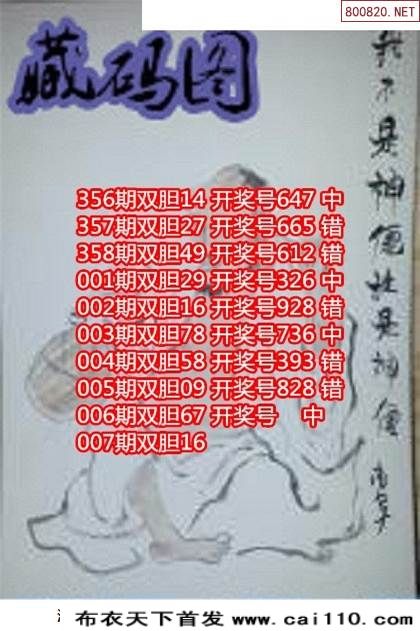 800820.NET
藏码图
我不是神
但
是神
356期双胆14 开奖号647 中
357期双胆27 开奖号665 错
358期双胆49 开奖号612 错
001期双胆29 开奖号326 中
002期双胆16 开奖号928 错
003期双胆78 开奖号736 中
004期双胆58 开奖号393 错
005期双胆09 开奖号828 错
006期双胆67 开奖号 中
007期双胆16
布衣天下首发 www.cai110.com